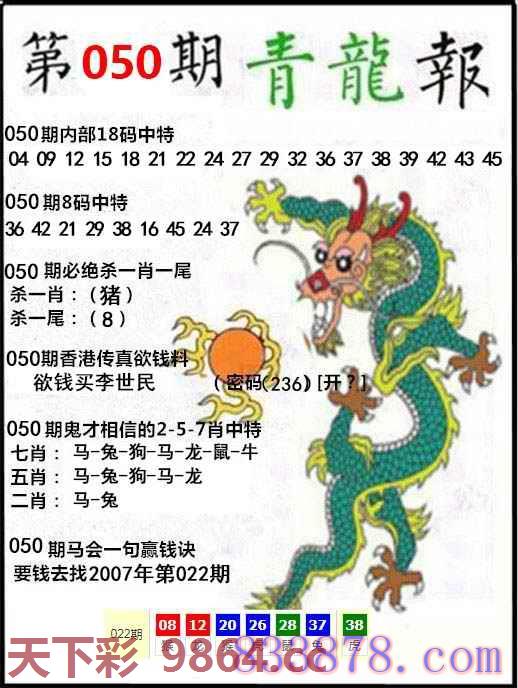 第050期 青龍報
050期内部18码中特
04 09 12 15 18 21 22 24 27 29 32 36 37 38 39 42 43 45
050期8码中特
36 42 21 29 38 16 45 24 37
050期必绝杀一肖一尾
杀一肖：（猪）
杀一尾：（8）
050期香港传真欲钱料
欲钱买李世民 （密码(236)[开？]
050期鬼才相信的2-5-7肖中特
七肖：马-兔-狗-马-龙-鼠-牛
五肖：马-兔-狗-马-龙
二肖：马-兔
050期马会一句赢钱诀
要钱去找2007年第022期
022期 08 12 20 26 28 37 38
猴 龙 猴 虎 鼠 兔 虎
天下彩 9864.cc
838878.com